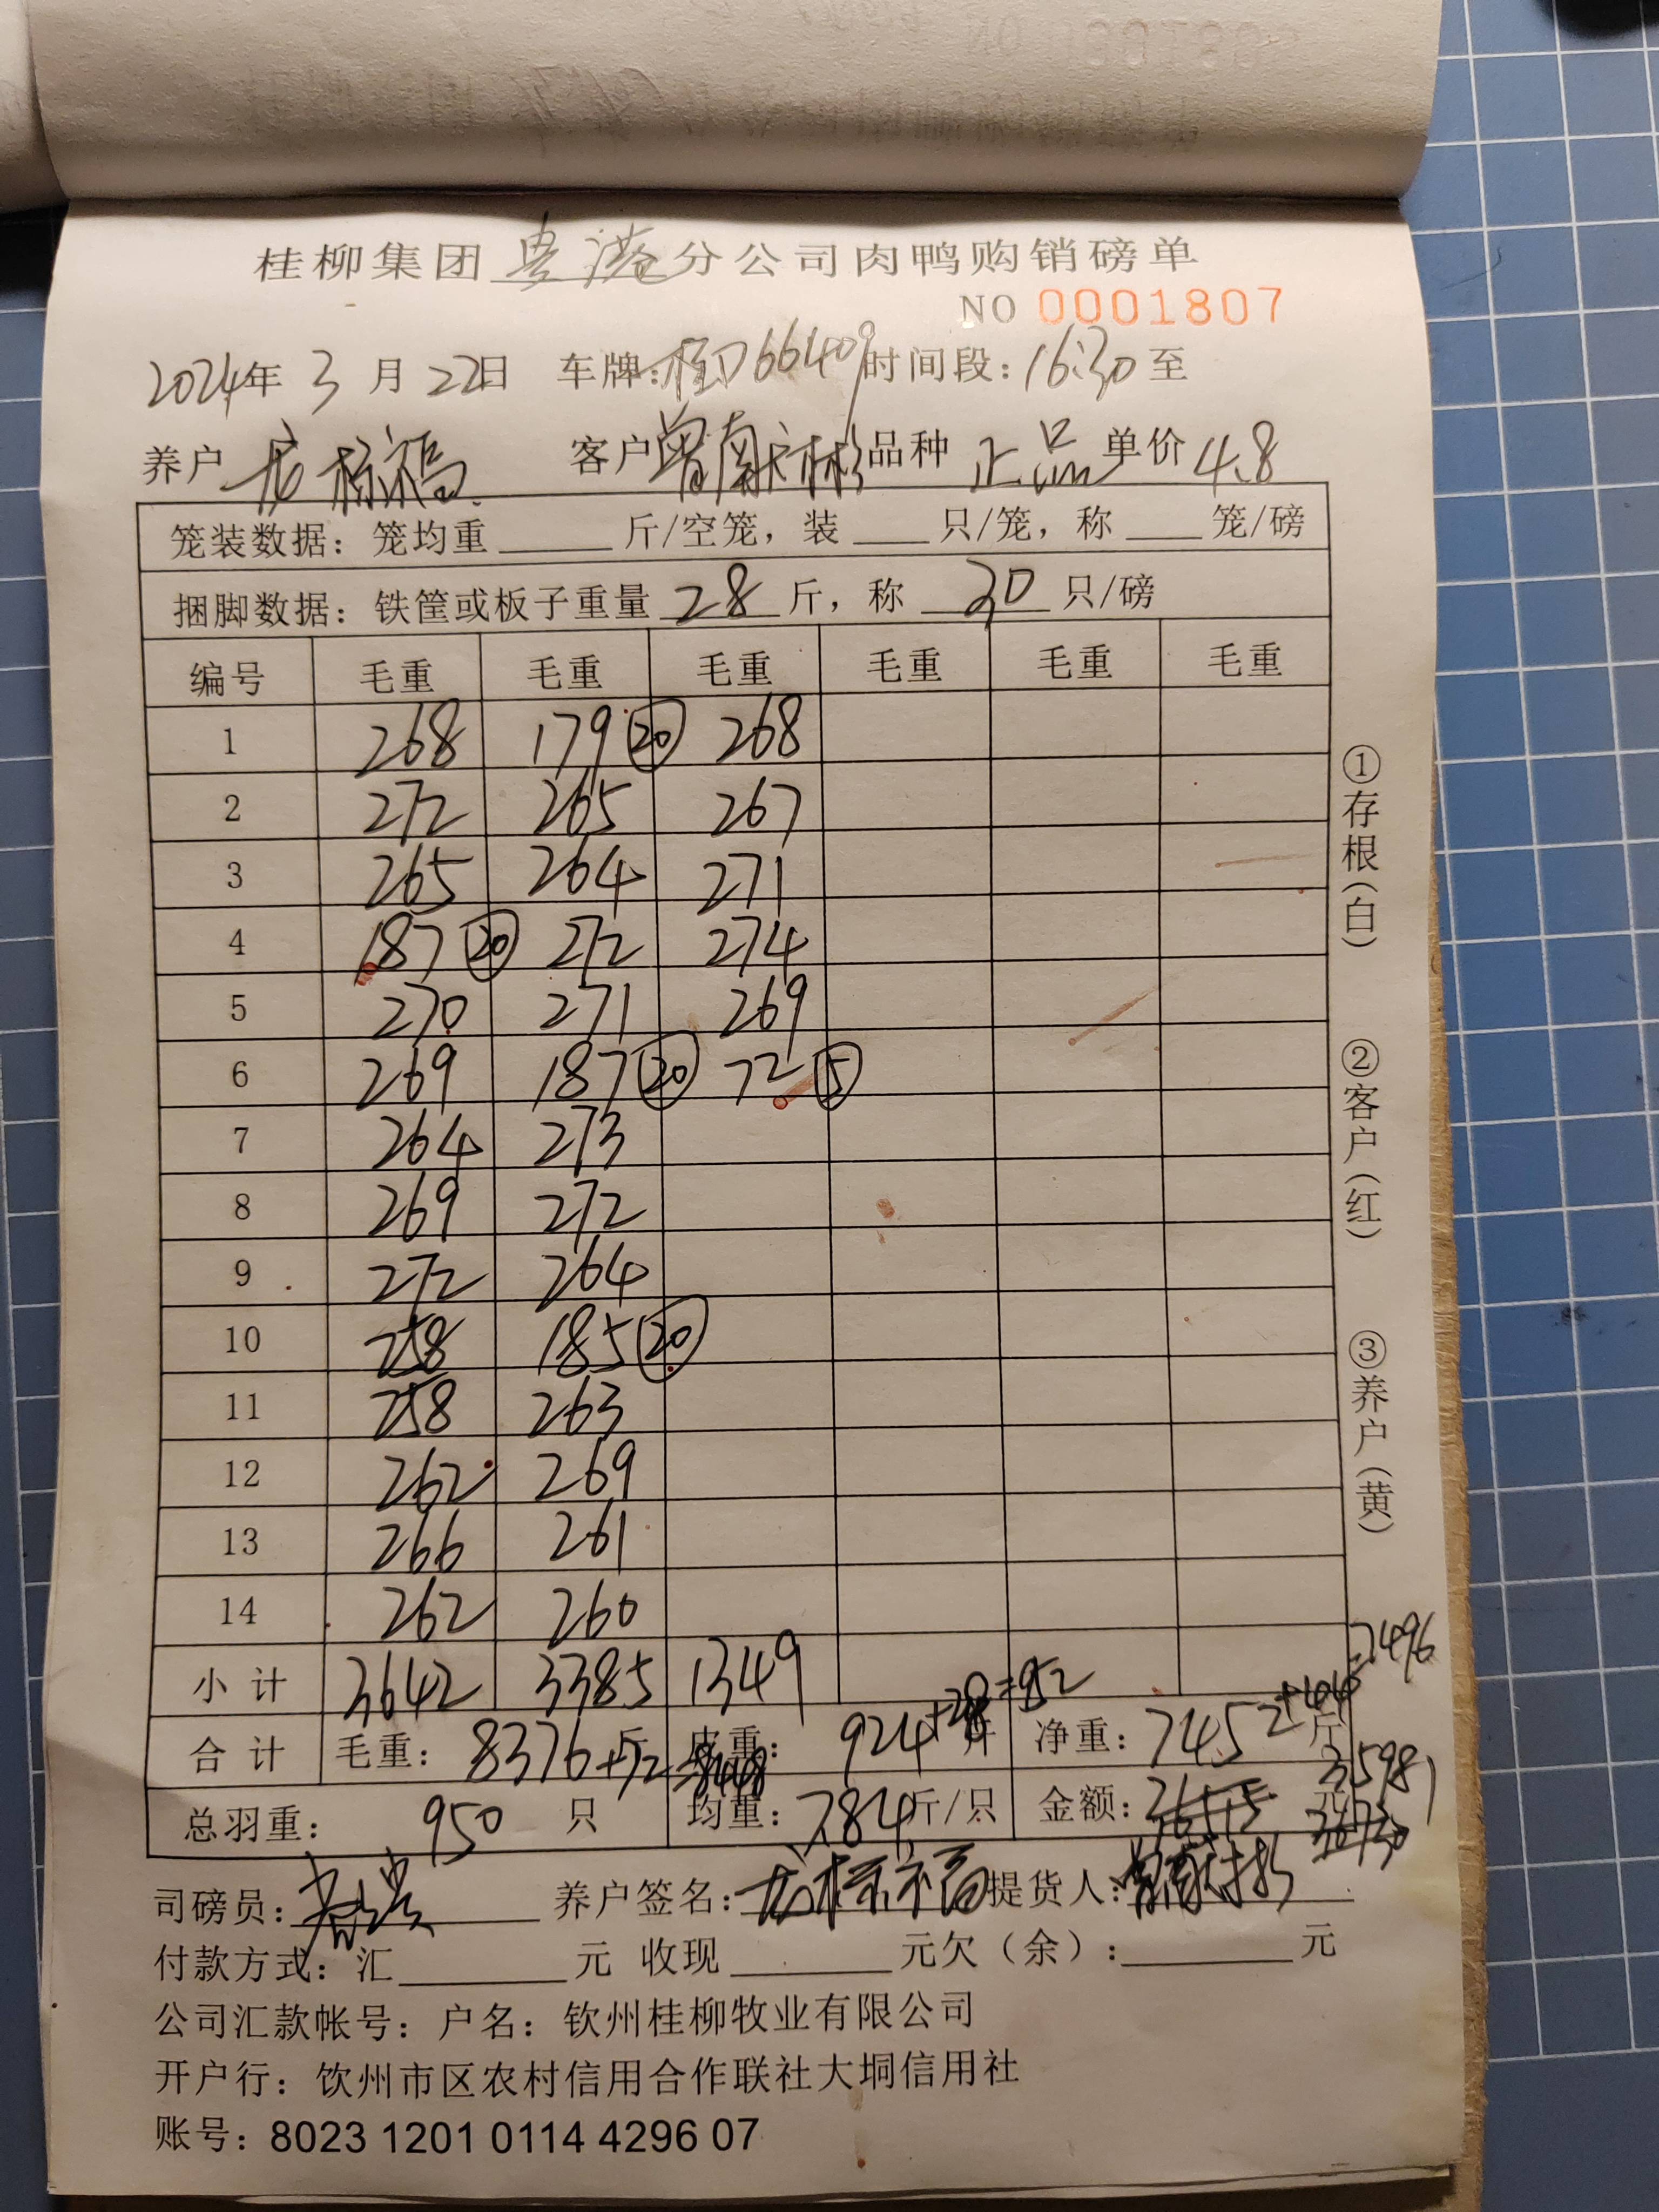 桂柳集团贵港分公司肉鸭购销磅单
NO 0001807
2024年3月22日 车牌:桂D66409 时间段:16:30至
养户 龙标福 客户 曾南 品种 正品 单价 4.8
笼装数据:笼均重 斤/空笼,装 只/笼,称 笼/磅
捆脚数据:铁筐或板子重量 28 斤,称 30 只/磅
编号 毛重 毛重 毛重 毛重 毛重 毛重
1 268 179 ⑳ 268
2 272 265 267
3 265 264 271
4 187 ⑳ 272 274
5 270 271 269
6 269 187 ⑳ 72 ⑤
7 264 273
8 269 272
9 272 264
10 258 185 ⑳
11 258 263
12 262 269
13 266 261
14 262 260
小计 3642 3385 1349
合计 毛重:8376+72=8448 斤 皮重:924+28=952 斤 净重:7452+44=7496 斤
总羽重:950 只 均重:7.84 斤/只 金额: 35981 元
司磅员: 养户签名:龙标福 提货人:
付款方式:汇 元 收现 元欠(余): 元
公司汇款帐号:户名:钦州桂柳牧业有限公司
开户行:饮州市区农村信用合作联社大垌信用社
账号:8023 1201 0114 4296 07
①存根(白)
②客户(红)
③养户(黄)